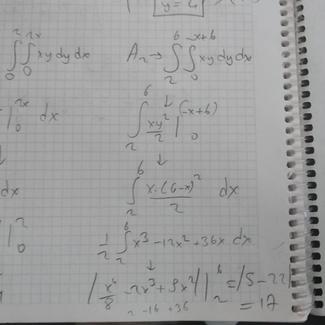 y = 6
∫₀² ∫₀²ˣ xy dy dx
A₂ → ∫₂⁶ ∫₀⁻ˣ⁺⁶ xy dy dx
|₀²ˣ dx
∫₂⁶ xy²/2 |₀^(-x+6)
dx
∫₂⁶ x·(6-x)²/2 dx
|₀²
1/2 ∫₂⁶ x³ - 12x² + 36x dx
| x⁴/8 - 2x³ + 9x² | |₂⁶ =
2 - 16 + 36
= 17